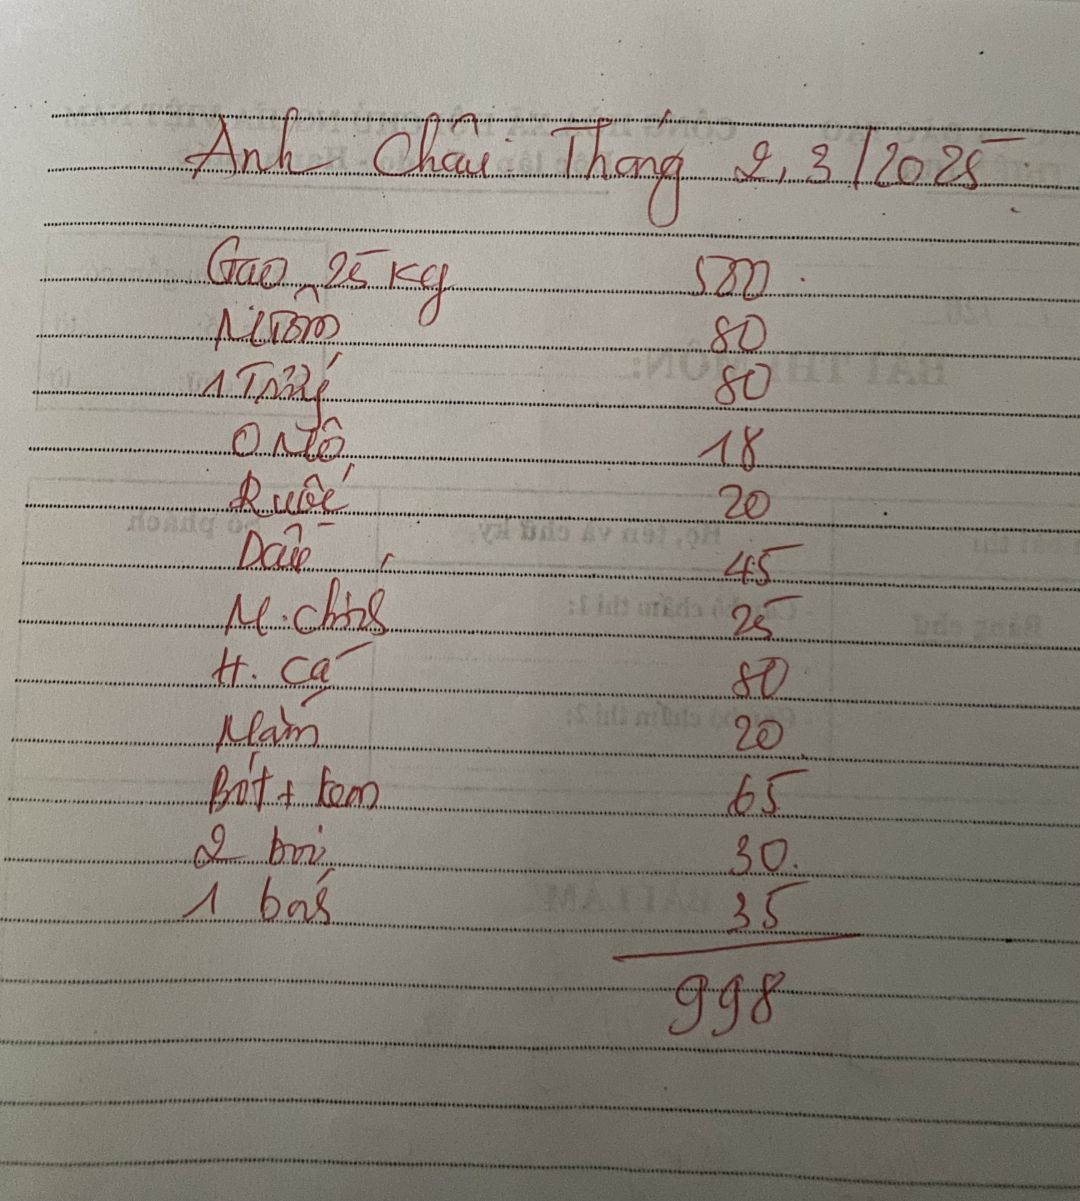 Anh Châu: Tháng 2, 3/2025
Gạo 25 kg 500
M Tôm 80
1 Trứng 80
Ô Mô 18
Ruốc 20
Dầu 45
M. chính 25
H. Cá 80
Mắm 20
Bột + kem 65
2 bò 30
1 báo 35
998